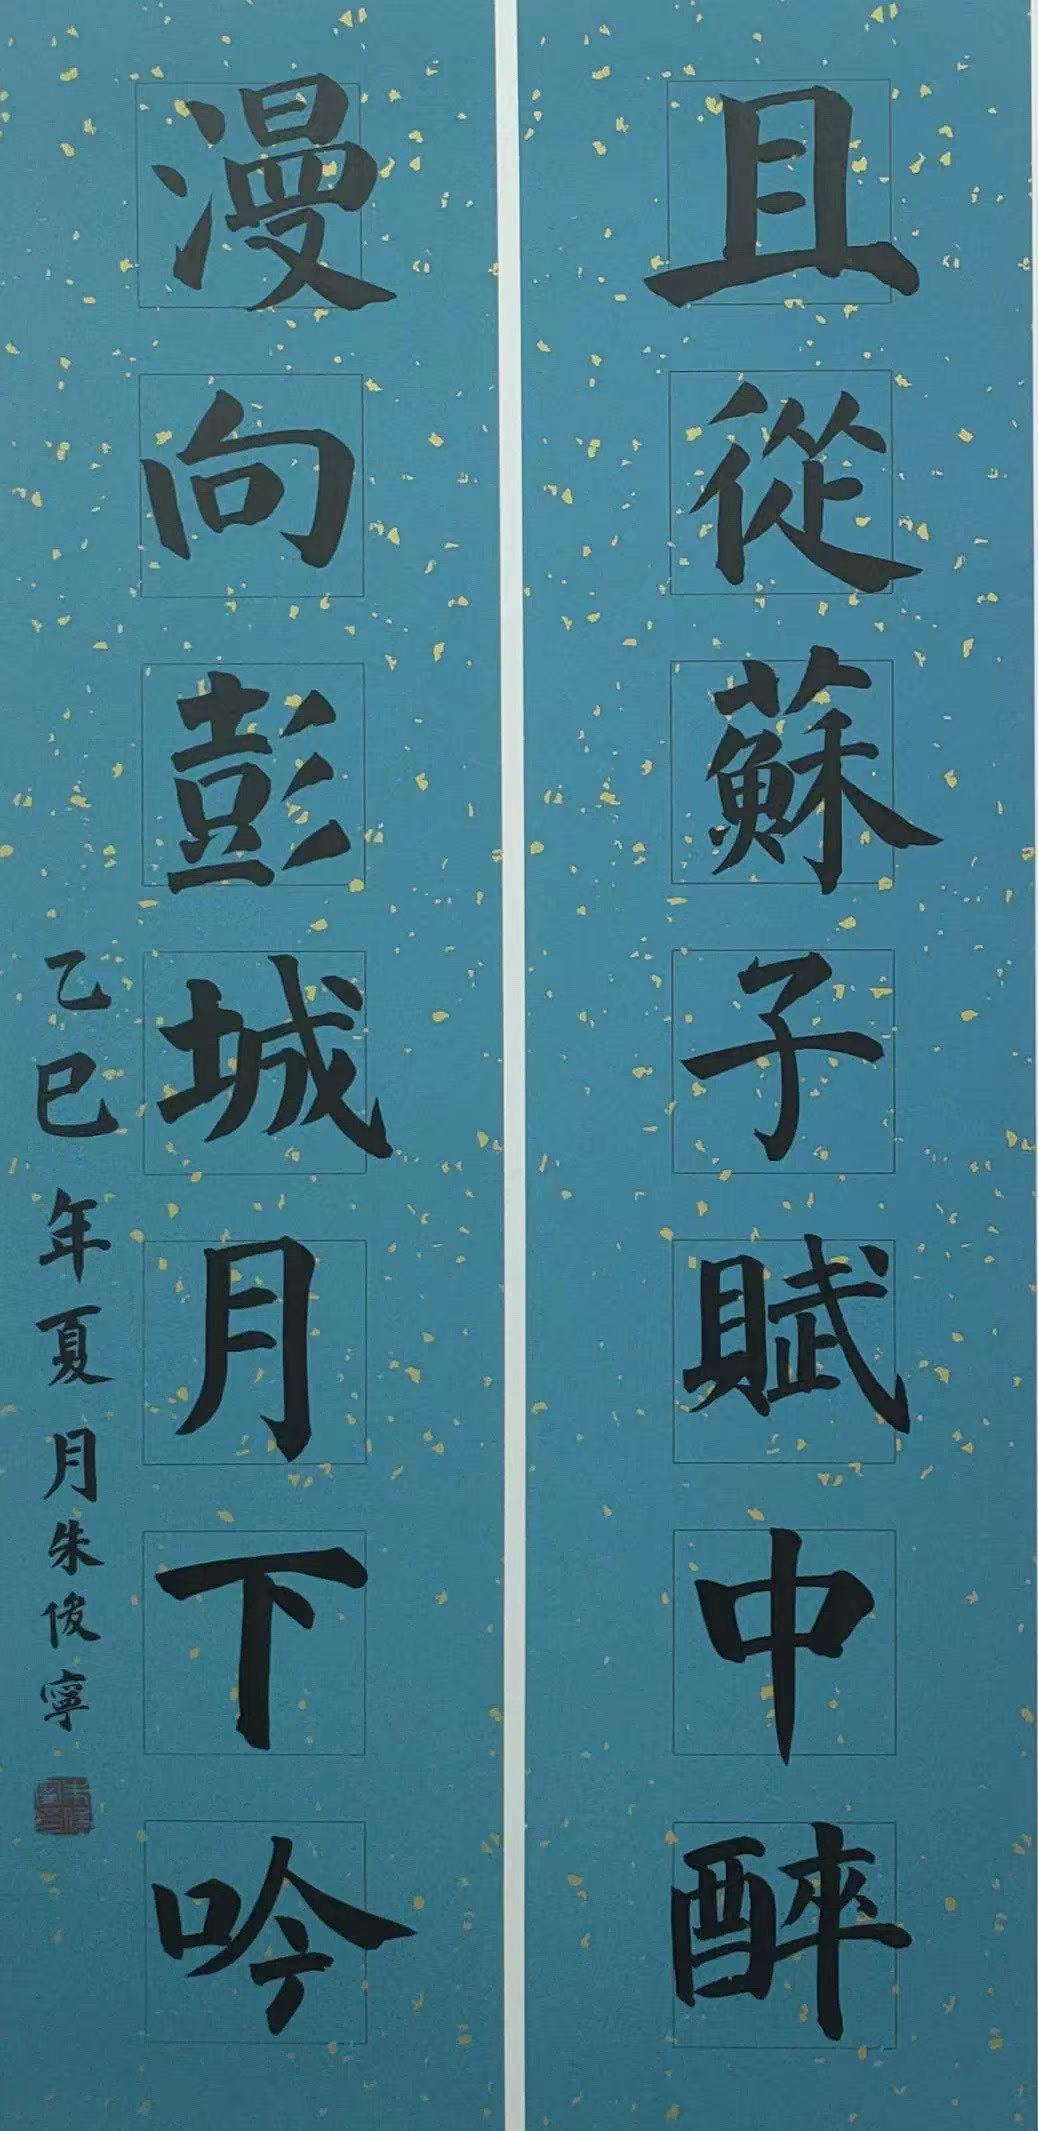 且從蘇子賦中醉
漫向彭城月下吟
乙巳年夏月朱俊寧